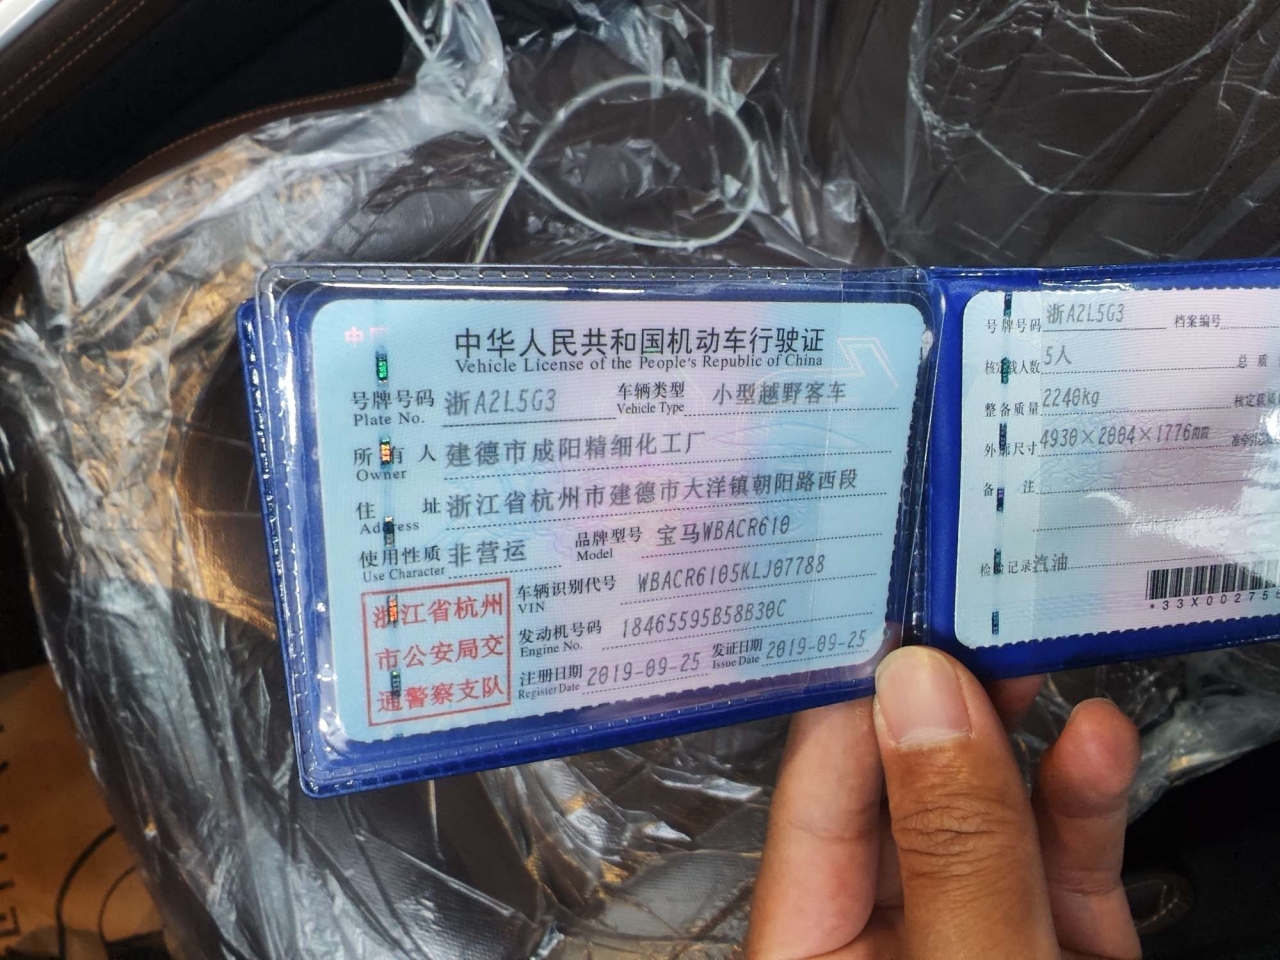 中华人民共和国机动车行驶证
Vehicle License of the People's Republic of China
号牌号码 浙A2L5G3 车辆类型 小型越野客车
Plate No. Vehicle Type
所有人 建德市成阳精细化工厂
Owner
住址 浙江省杭州市建德市大洋镇朝阳路西段
Address
使用性质 非营运 品牌型号 宝马WBACR610
Use Character Model
浙江省杭州
市公安局交
通警察支队
车辆识别代号 WBACR6105KLJ07788
VIN
发动机号码 18465595B58B30C
Engine No.
注册日期 2019-09-25 发证日期 2019-09-25
Register Date Issue Date
号牌号码 浙A2L5G3 档案编号
核定载人数 5人 总质
整备质量 2240kg 核定载质
外廓尺寸 4930×2004×1776mm 准牵引总
备注
检验记录 汽油
*33X00275